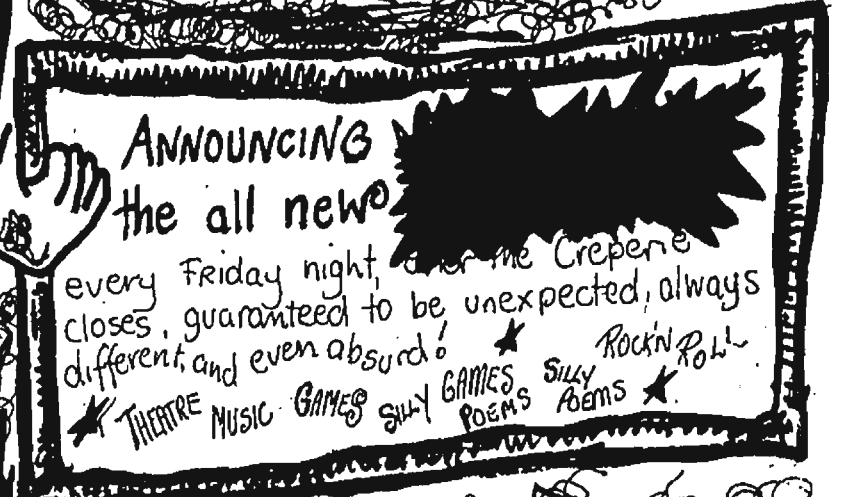 ANNOUNCING
the all new
every Friday night, the Creperie
closes, guaranteed to be unexpected, always
different, and even absurd!
ROCK'N ROLL
THEATRE MUSIC GAMES SILLY GAMES SILLY
POEMS POEMS